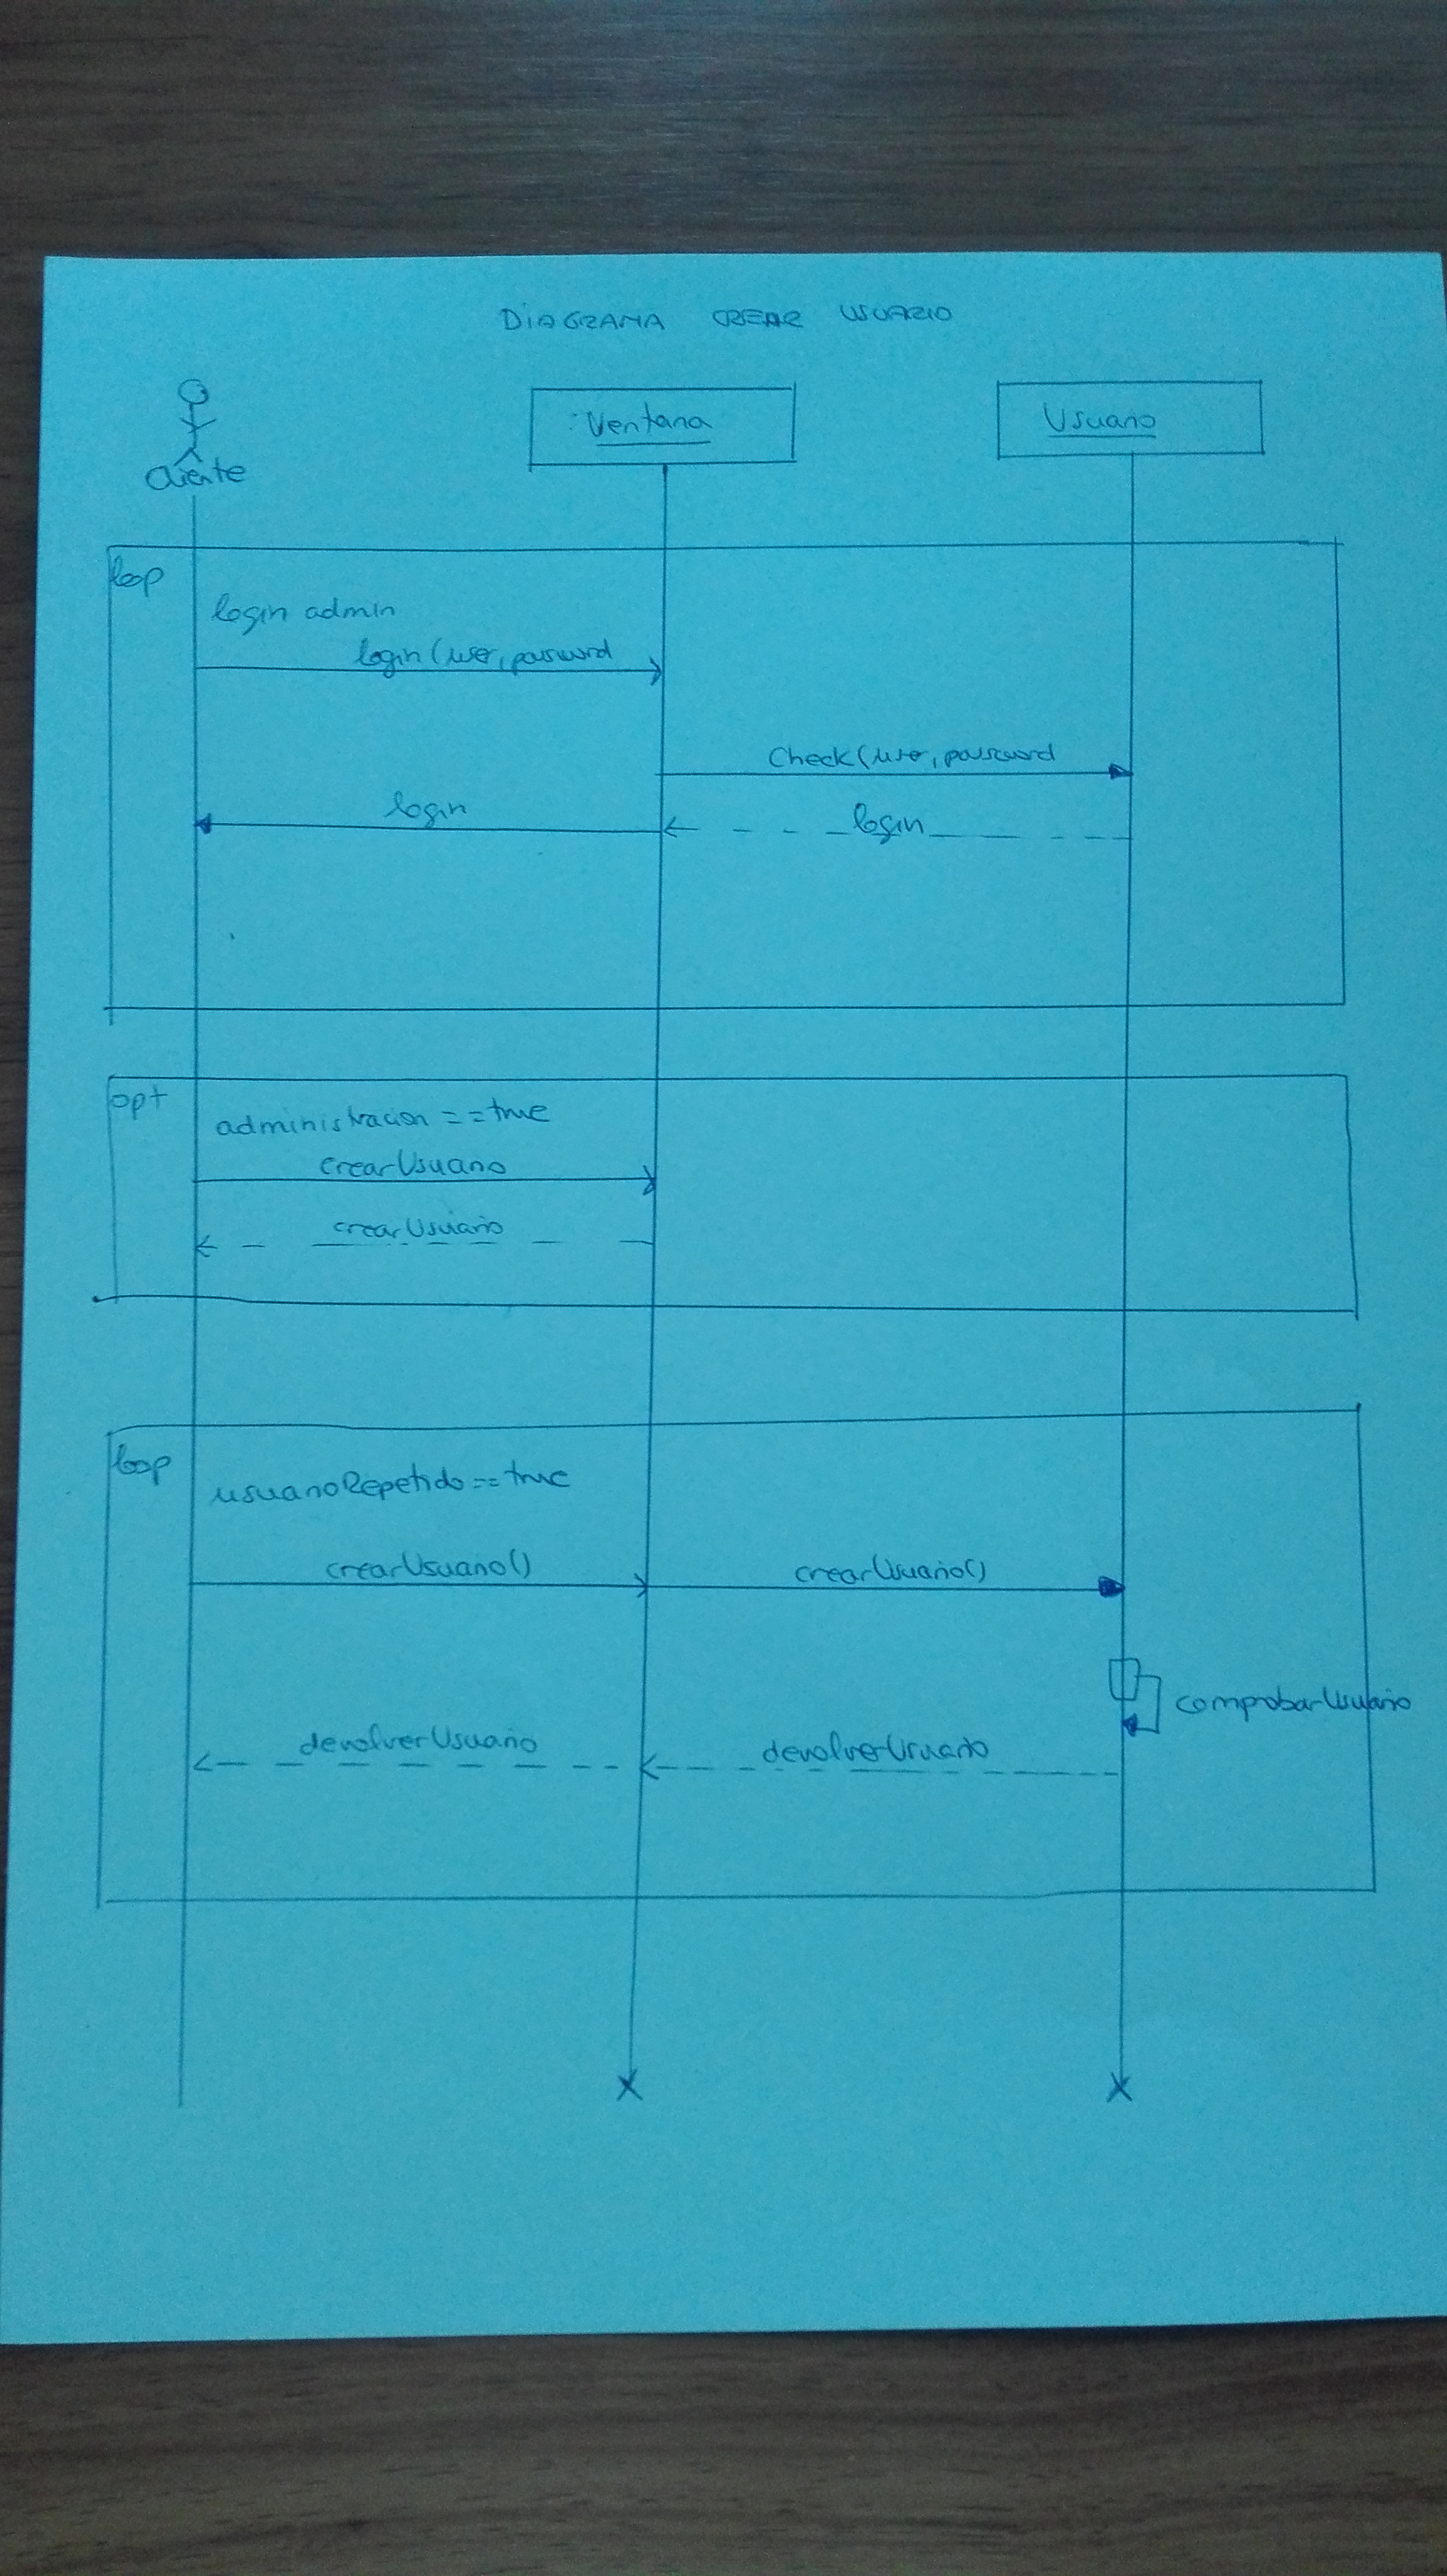 DIAGRAMA CREAR USUARIO
Cliente
:Ventana
Usuario
loop
login admin
login(user, password
Check(user, password
login
login
opt
administracion == true
crearUsuario
crearUsuario
loop
usuarioRepetido == true
crearUsuario()
crearUsuario()
comprobarUsuario
devolverUsuario
devolverUsuario